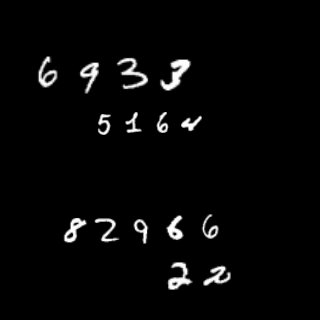 6933
5164
82966
22